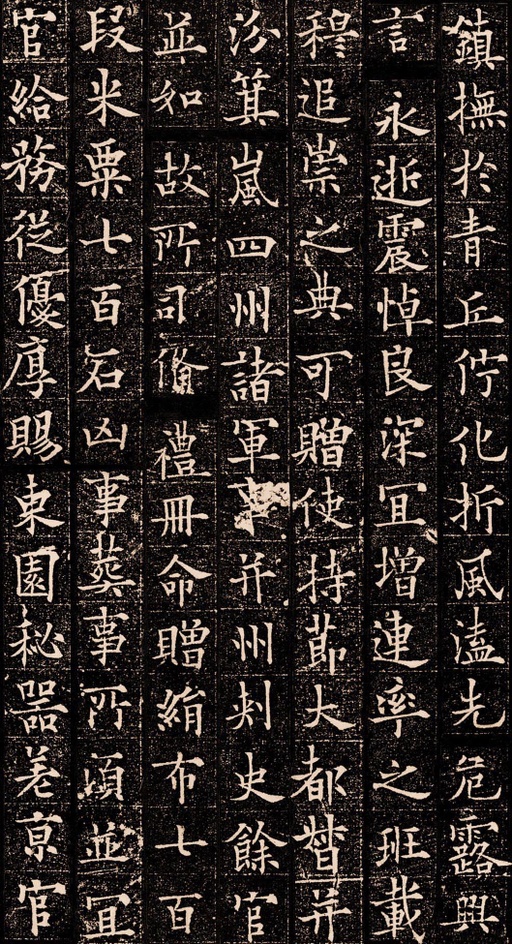 鎮撫於青丘佇化折風溘先危露興
言永逝震悼良深冝増連率之班載
穆追崇之典可贈使持節大都督并
汾箕嵐四州諸軍事并州刺史餘官
並如故所司備禮冊命贈絹布七百
段米粟七百石凶事葬事所須並冝
官給務從優厚賜東園秘器差京官